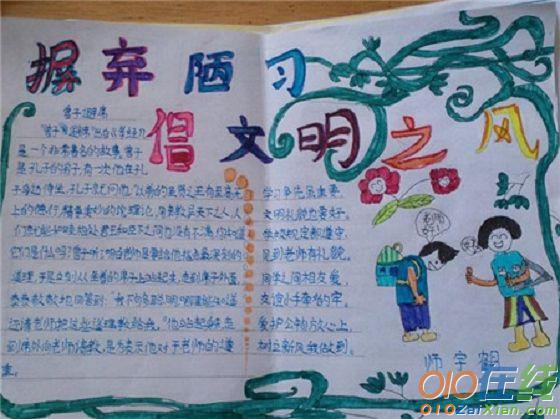 摒弃陋习
倡文明之风
曾子避席
"曾子避席"出自《孝经》
是一个非常著名的故事。曾子
是孔子的弟子,有一次他在孔
子身边侍坐,孔子就问他:"以前的圣贤之王有至高无
上的德行,精要奥妙的理论,用来教导天下之人,人
们就能和睦相处,君王和臣下之间也没有不满,你知道
它们是什么吗?"曾子听了,明白老师是要指点他最深刻的
道理,于是立刻从坐着的席子上站起来,走到席子外面,
恭恭敬敬地回答到:"我不够聪明,哪里能知道
还请老师把这些道理教给我。"他站起来,走
到席外向老师请教,是为表示他对于老师的尊
重。
学习争先最重要,
文明礼貌也重好,
学校规定都遵守,
见到老师有礼貌。
同学之间相友爱,
友谊小手牵给的牢。
爱护公物放心上,
树立新风我做到。
老师
好!
你好
师宇翱
010在线
010ZaiXian.com